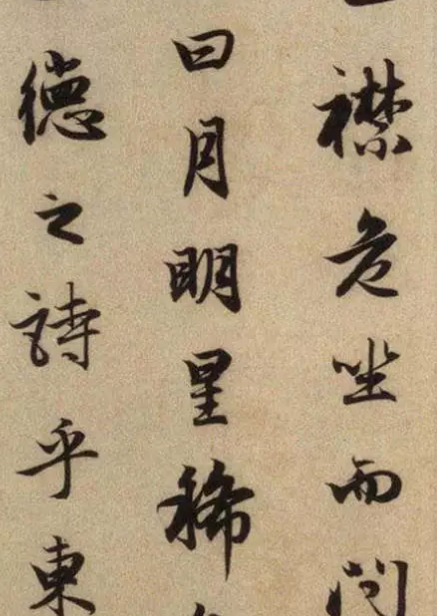 襟危坐而問
曰月明星稀
德之詩乎東